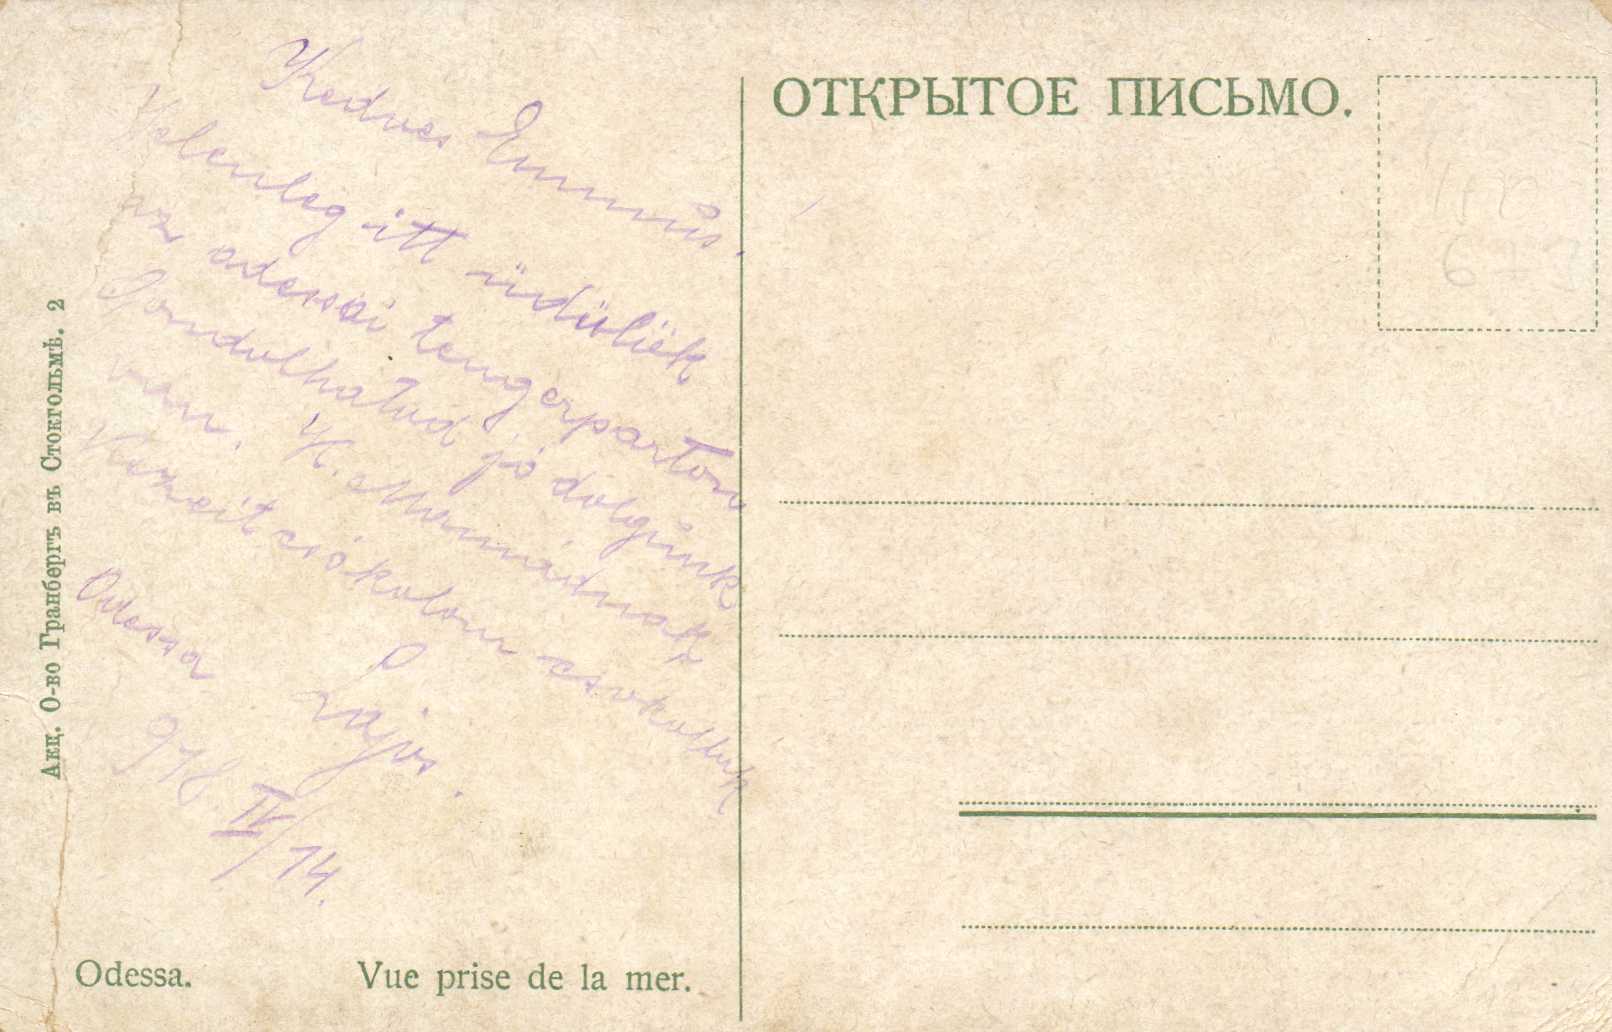 Kedves Emmus.
Jelenleg itt üdülük
az odessai tengerparton
Gondolhatod jó dolgunk
van. K. Mamádnak
Kezeit csókolom csokollak
Lajos.
Odessa
918 IV/14.
ОТКРЫТОЕ ПИСЬМО.
Акц. О-во Гранбергъ въ Стокгольмѣ. 2
Odessa. Vue prise de la mer.